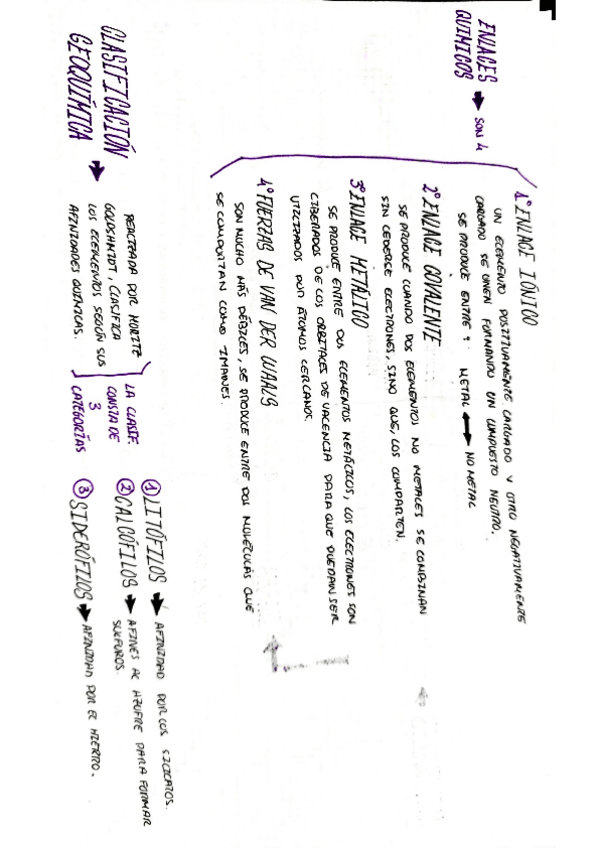 ENLACES
QUÍMICOS → SON 4
1º ENLACE IÓNICO
UN ELEMENTO POSITIVAMENTE CARGADO Y OTRO NEGATIVAMENTE
CARGADO SE UNEN FORMANDO UN COMPUESTO NEUTRO.
SE PRODUCE ENTRE: METAL ↔ NO METAL
2º ENLACE COVALENTE
SE PRODUCE CUANDO DOS ELEMENTOS NO METALES SE COMBINAN
SIN CEDERSE ELECTRONES, SINO QUE, LOS COMPARTEN.
3º ENLACE METÁLICO
SE PRODUCE ENTRE DOS ELEMENTOS METÁLICOS, LOS ELECTRONES SON
LIBERADOS DE LOS ORBITALES DE VALENCIA PARA QUE PUEDAN SER
UTILIZADOS POR ÁTOMOS CERCANOS.
4º FUERZAS DE VAN DER WAALS
SON MUCHO MÁS DÉBILES, SE PRODUCE ENTRE DOS MOLÉCULAS QUE
SE COMPORTAN COMO IMANES.
CLASIFICACIÓN
GEOQUÍMICA →
REALIZADA POR MORITE
GOLDSCHMIDT, CLASIFICA
LOS ELEMENTOS SEGÚN SUS
AFINIDADES QUÍMICAS.
LA CLASIF.
CONSTA DE
3
CATEGORÍAS
① LITÓFILOS → AFINIDAD POR LOS SILICATOS.
② CALCÓFILOS → AFINES AL AZUFRE PARA FORMAR
SULFUROS.
③ SIDERÓFILOS → AFINIDAD POR EL HIERRO.